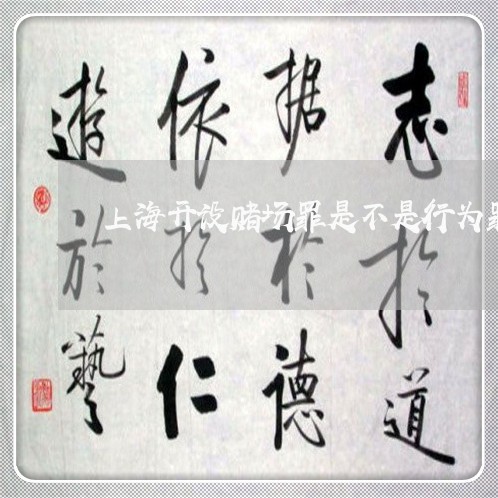 志於道
据於德
依於仁
遊於藝
上海开设赌场罪是不是行为罪